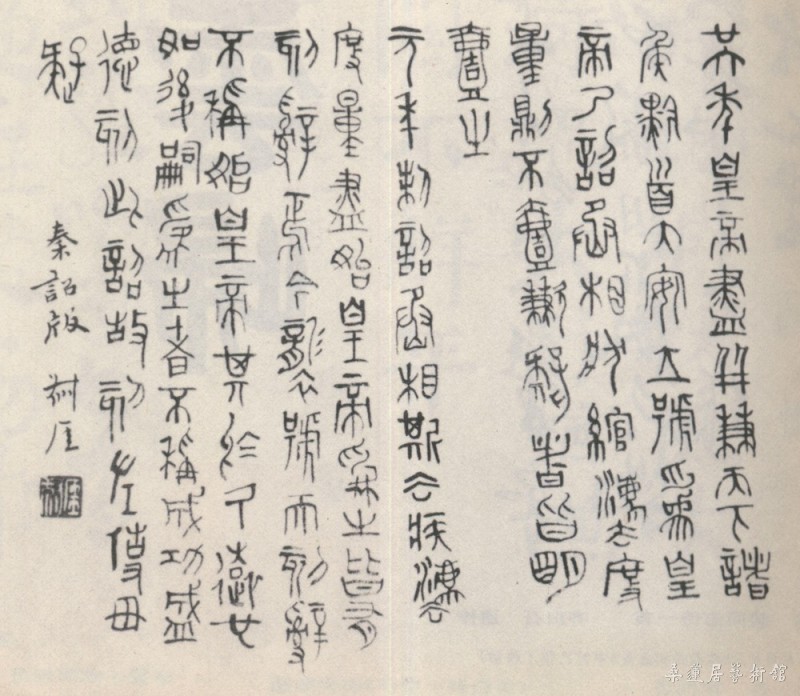 廿六年皇帝盡并兼天下諸
侯黔首大安立號為皇
帝乃詔丞相狀綰灋度
量則不壹歉疑者皆明
壹之
元年制詔丞相斯去疾灋
度量盡始皇帝為之皆有
刻辭焉今襲號而刻辭
不稱始皇帝其於久遠也
如後嗣為之者不稱成功盛
德刻此詔故刻左使毋
疑
秦詔版
桑蓮居藝術館